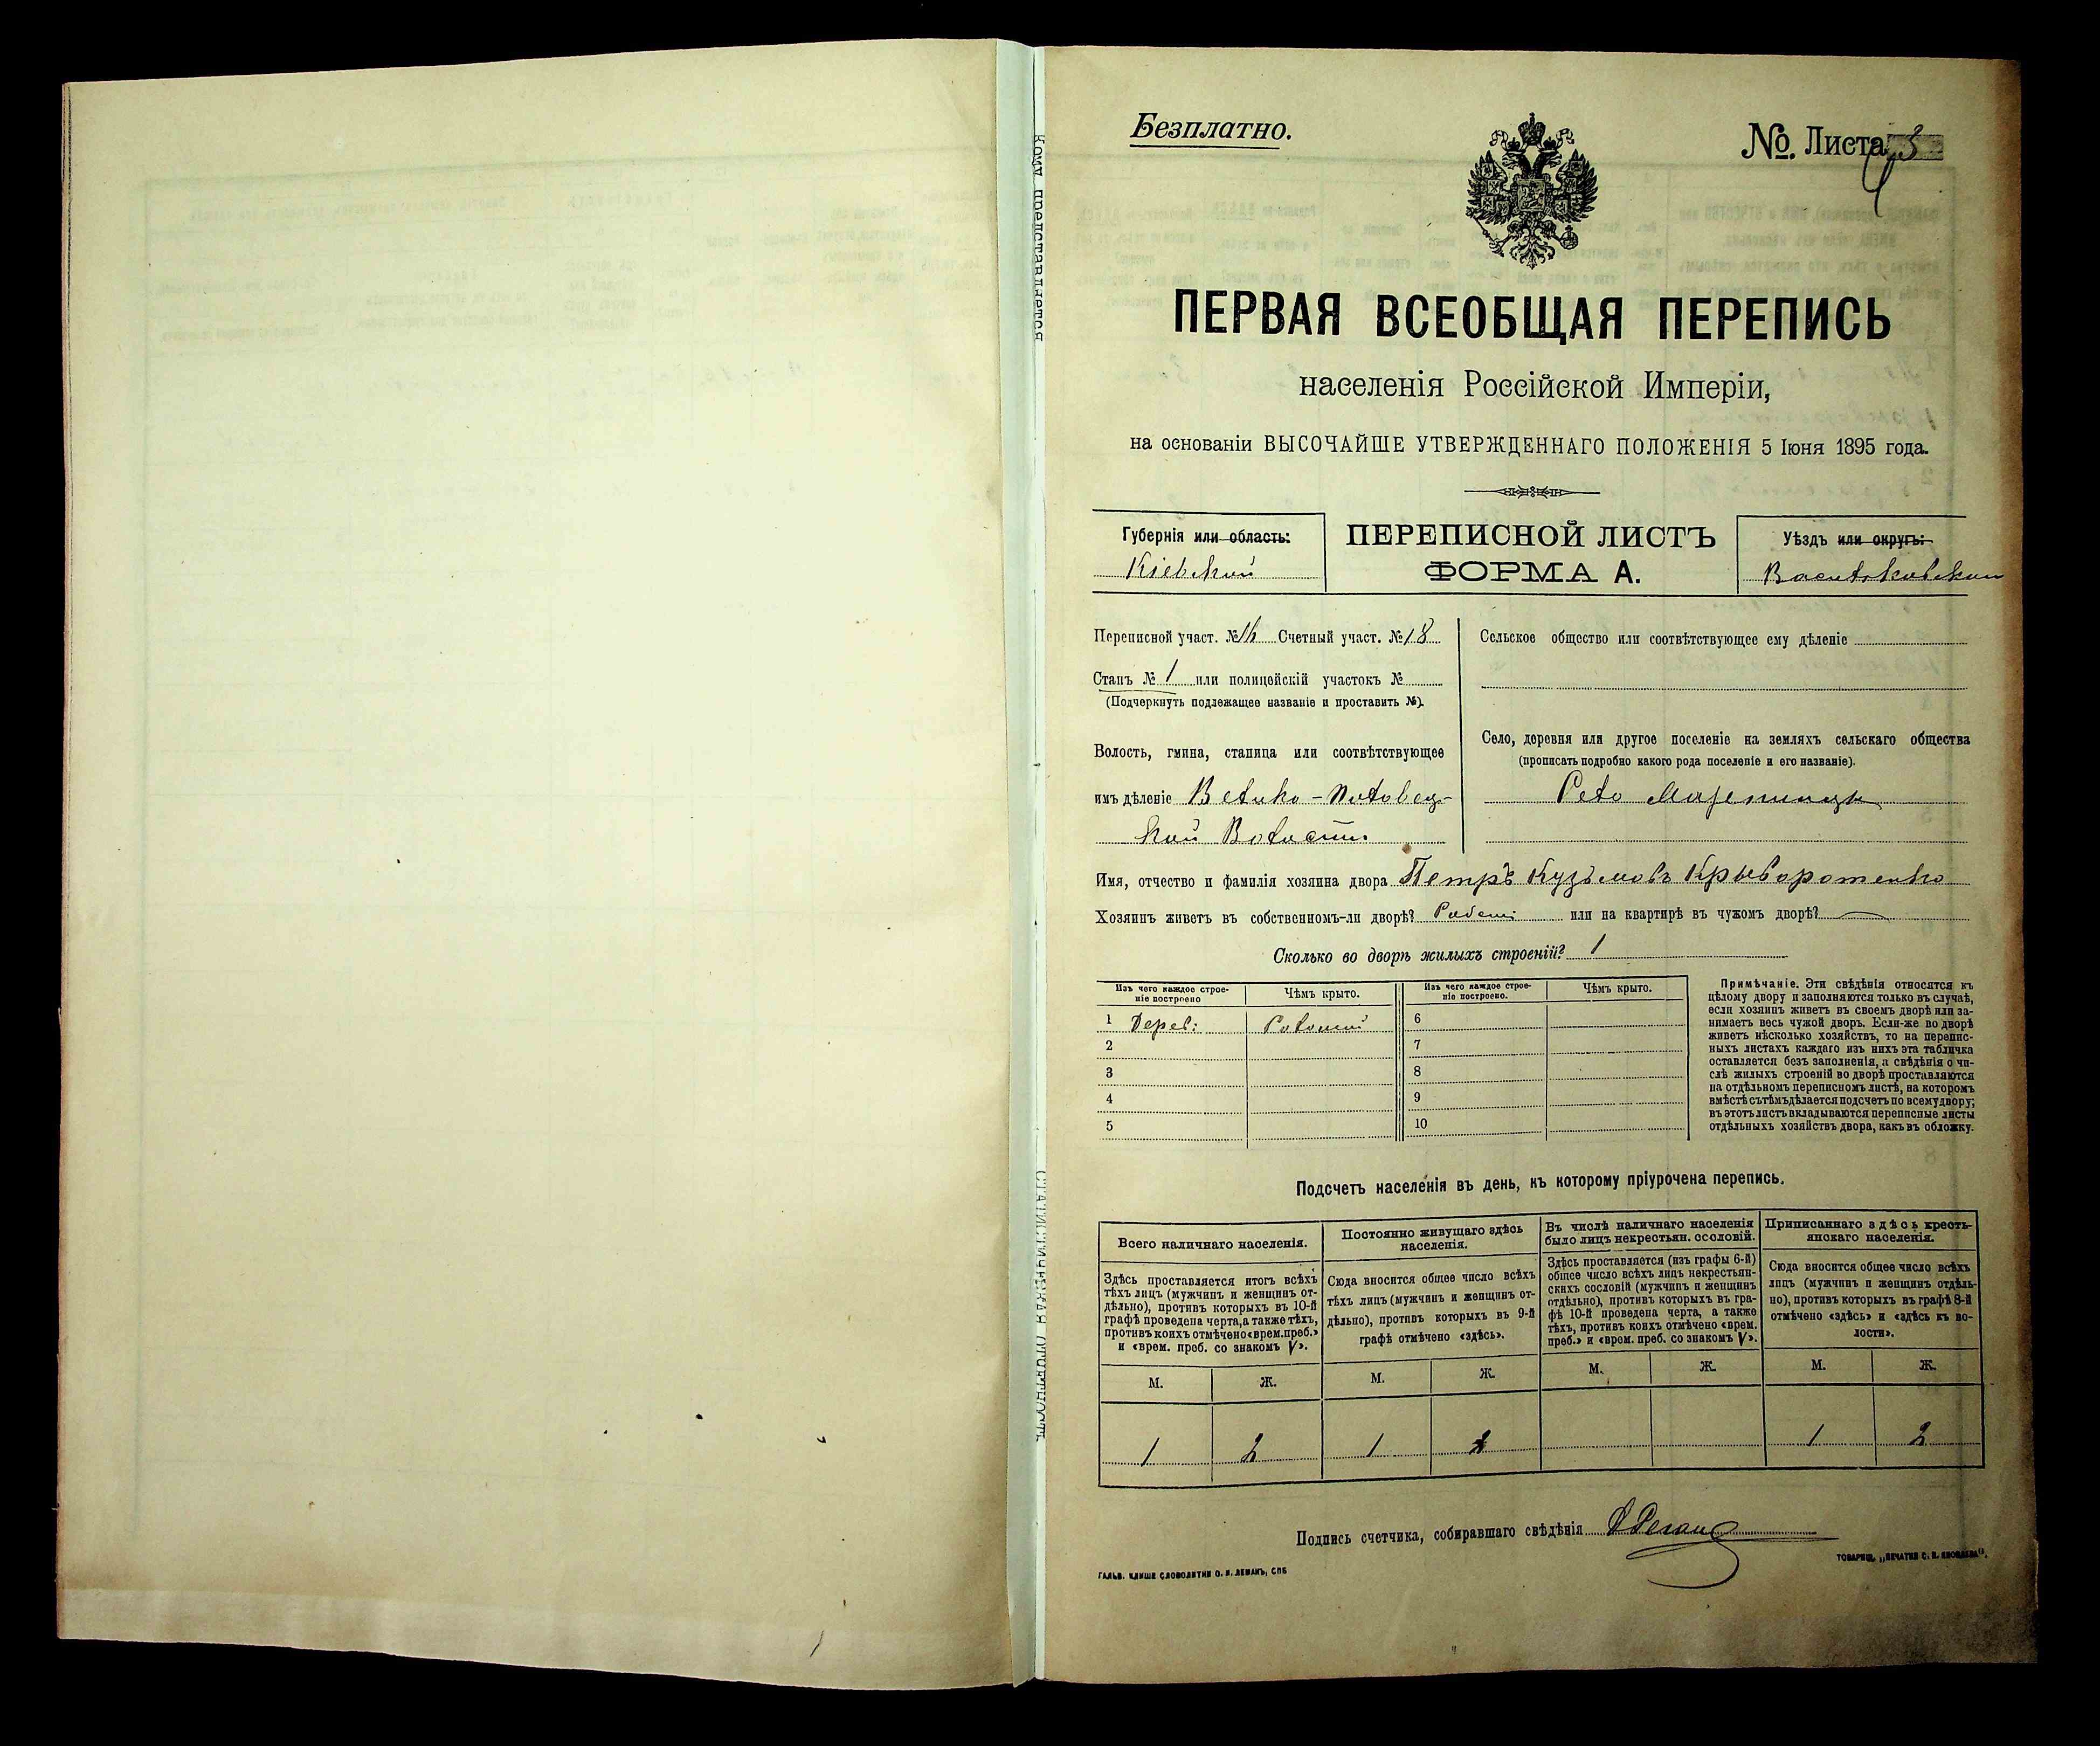 Безплатно.
№. Листа 3
ПЕРВАЯ ВСЕОБЩАЯ ПЕРЕПИСЬ
населенія Россійской Имперіи,
на основаніи ВЫСОЧАЙШЕ УТВЕРЖДЕННАГО ПОЛОЖЕНІЯ 5 Іюня 1895 года.
Губернія или область:
Кіевской
ПЕРЕПИСНОЙ ЛИСТЪ
ФОРМА А.
Уѣздъ или округъ:
Васильковскій
Переписной участ. № 16 Счетный участ. № 18
Станъ № 1 или полицейскій участокъ №
(Подчеркнуть подлежащее названіе и проставить №).
Волость, гмина, станица или соотвѣтствующее
имъ дѣленіе Велико-Половец-
кой Волости
Сельское общество или соотвѣтствующее ему дѣленіе
Село, деревня или другое поселеніе на земляхъ сельскаго общества
(прописать подробно какого рода поселеніе и его названіе).
Село Мазепинцы
Имя, отчество и фамилія хозяина двора Петръ Кузьмовъ Крыворотенко
Хозяинъ живетъ въ собственномъ-ли дворѣ? или на квартирѣ въ чужомъ дворѣ? —
Сколько во дворѣ жилыхъ строеній? 1
Изъ чего каждое строе-
ніе построено
Чѣмъ крыто.
Изъ чего каждое строе-
ніе построено.
Чѣмъ крыто.
1 Дерев: Соломой
2
3
4
5
6
7
8
9
10
Примѣчаніе. Эти свѣдѣнія относятся къ
цѣлому двору и заполняются только въ случаѣ,
если хозяинъ живетъ въ своемъ дворѣ или за-
нимаетъ весь чужой дворъ. Если-же во дворѣ
живетъ нѣсколько хозяйствъ, то на перепис-
ныхъ листахъ каждаго изъ нихъ эта табличка
оставляется безъ заполненія, а свѣдѣнія о чи-
слѣ жилыхъ строеній во дворѣ проставляются
на отдѣльномъ переписномъ листѣ, на которомъ
вмѣстѣ съ тѣмъ дѣлается подсчетъ по всему двору;
въ этотъ листъ вкладываются переписные листы
отдѣльныхъ хозяйствъ двора, какъ въ обложку.
Подсчетъ населенія въ день, къ которому пріурочена перепись.
Всего наличнаго населенія.
Здѣсь проставляется итогъ всѣхъ
тѣхъ лицъ (мужчинъ и женщинъ от-
дѣльно), противъ которыхъ въ 10-й
графѣ проведена черта, а также тѣхъ,
противъ коихъ отмѣчено «врем. преб.»
и «врем. преб. со знакомъ V».
Постоянно живущаго здѣсь
населенія.
Сюда вносится общее число всѣхъ
тѣхъ лицъ (мужчинъ и женщинъ от-
дѣльно), противъ которыхъ въ 9-й
графѣ отмѣчено «здѣсь».
Въ числѣ наличнаго населенія
было лицъ некрестьян. сословій.
Здѣсь проставляется (изъ графы 6-й)
общее число всѣхъ лицъ некрестьян-
скихъ сословій (мужчинъ и женщинъ
отдѣльно), противъ которыхъ въ гра-
фѣ 10-й проведена черта, а также
тѣхъ, противъ коихъ отмѣчено «врем.
преб.» и «врем. преб. со знакомъ V».
Приписаннаго здѣсь кресть-
янскаго населенія.
Сюда вносится общее число всѣхъ
лицъ (мужчинъ и женщинъ отдѣль-
но), противъ которыхъ въ графѣ 8-й
отмѣчено «здѣсь» и «здѣсь къ во-
лости».
М. Ж. М. Ж. М. Ж. М. Ж.
1 2 1 2 1 2
Подпись счетчика, собиравшаго свѣдѣнія
ГАЛЬВ. КЛИШЕ СЛОВОЛИТНИ О. И. ЛЕМАНЪ, СПБ
ТОВАРИЩ. „ПЕЧАТНЯ С. П. ЯКОВЛЕВА“.
Кому представляется
СТАТИСТИЧЕСКАЯ ОТЧЕТНОСТЬ